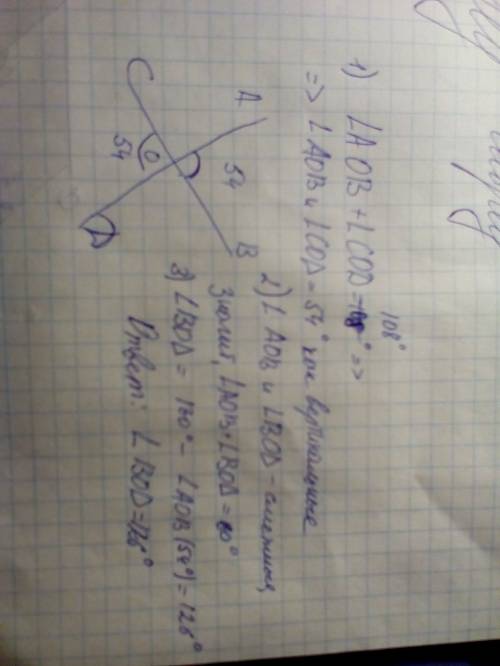 1) ∠AOB + ∠COD = 108° =>
=> ∠AOB и ∠COD = 54° как вертикальные
2) ∠AOB и ∠BOD - смежные
Значит, ∠AOB + ∠BOD = 180°
3) ∠BOD = 180° - ∠AOB (54°) = 126°
Ответ: ∠BOD = 126°
A
54
B
C
O
54
D